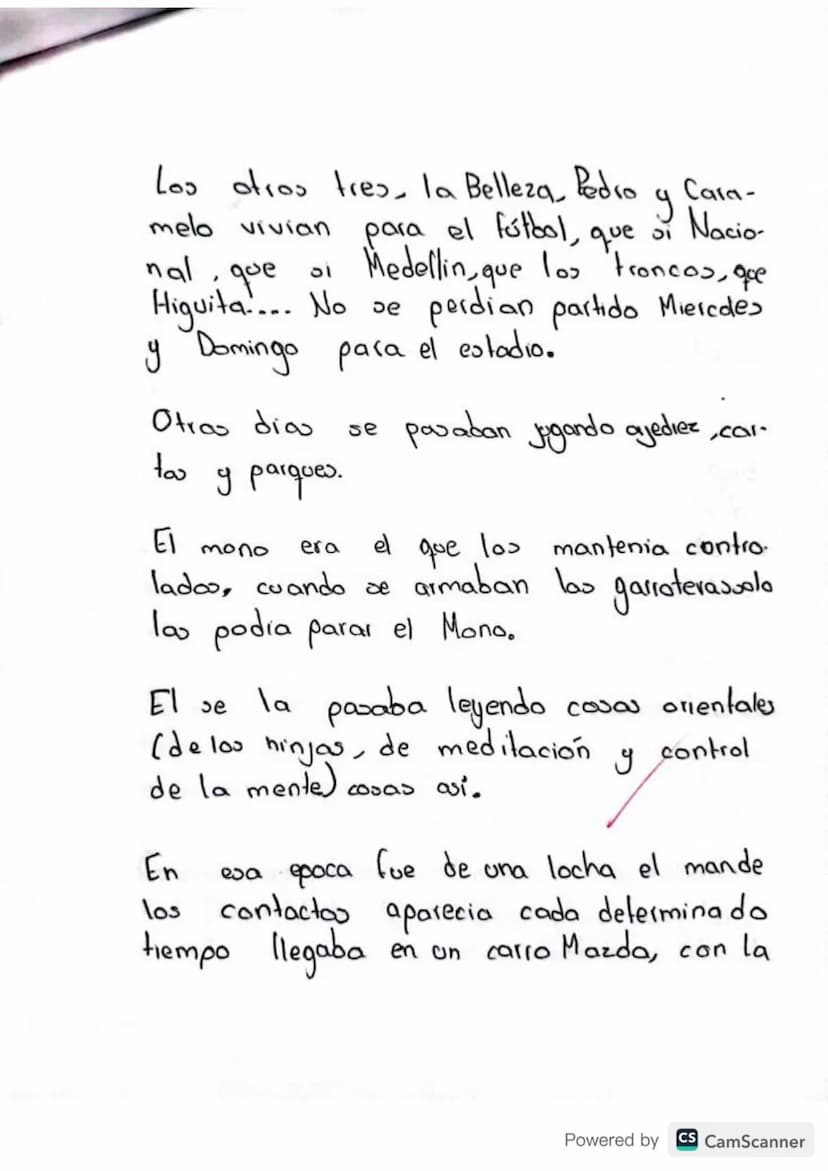 Los otros tres, la Belleza, Pedro y Cara-
melo vivian para el fútbol, que si Nacio-
nal, que si Medellin, que los troncos, que
Higuita.... No se perdian partido Miercoles
y Domingo para el estadio.
Otros dias se pasaban jugando ajedrez, car-
tas y parques.
El mono era el que los mantenia contro-
lados, cuando se armaban las garroteras solo
las podia parar el Mono.
El se la pasaba leyendo cosas orientales
(de los ninjas, de meditación y control
de la mente) cosas así.
En esa epoca fue de una locha el mande
los contactos aparecia cada determinado
tiempo llegaba en un carro Mazda, con la
Powered by CS CamScanner